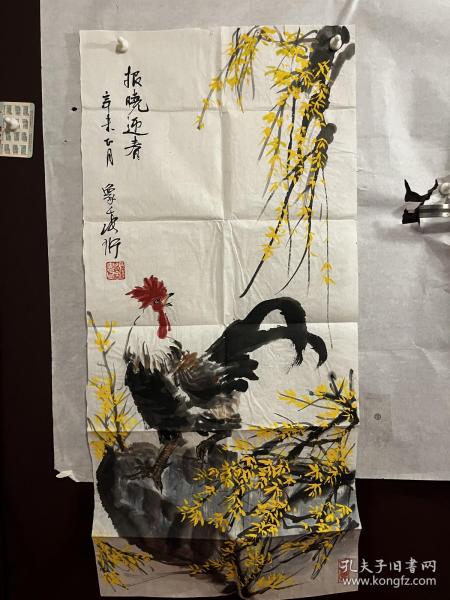 报晓迎春
辛未正月
孔夫子旧书网
www.kongfz.com